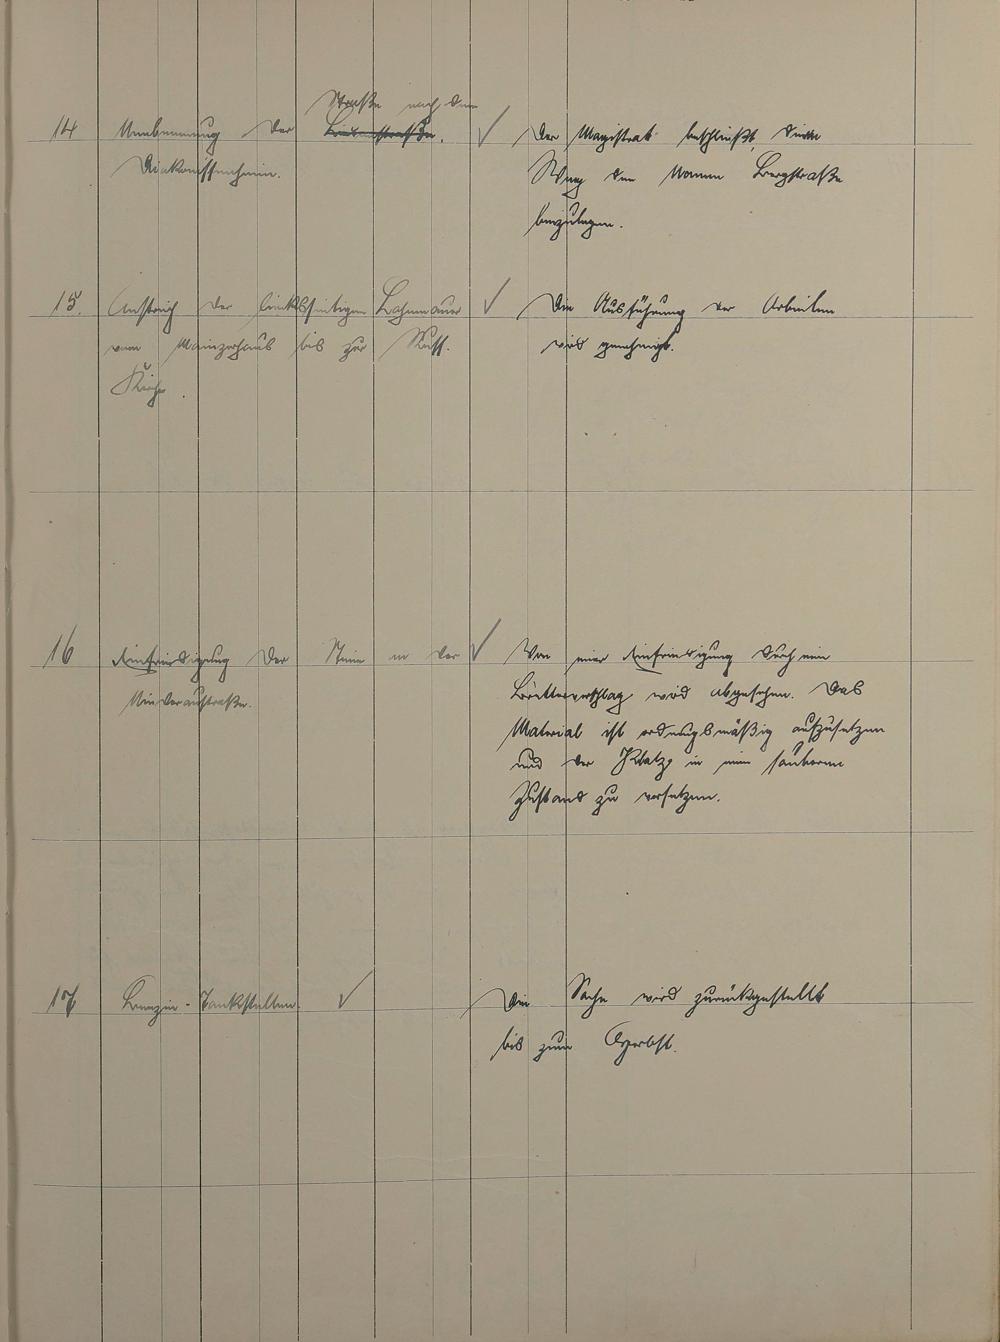 Straße nach dem
14 Umbenennung der Lindenstraße. ✓
Diakonissenheim.
Der Magistrat beschließt, diesem
Weg den Namen Bergstraße
beizulegen.
15. Anstrich der linksseitigen Lahnmauer ✓
vom Mainzerhaus bis zur Russ.
Kirche.
Die Ausführung der Arbeiten
wird genehmigt.
16 Einfriedigung der Steine in der ✓
Niveraustraße.
Von einer Einfriedigung durch ein
Bretterverschlag wird abgesehen. Das
Material ist ordnungsmäßig aufzusetzen
und der Platz in einen sauberen
Zustand zu versetzen.
17 Benzin-Tankstellen. ✓
Die Sache wird zurückgestellt
bis zum Herbst.